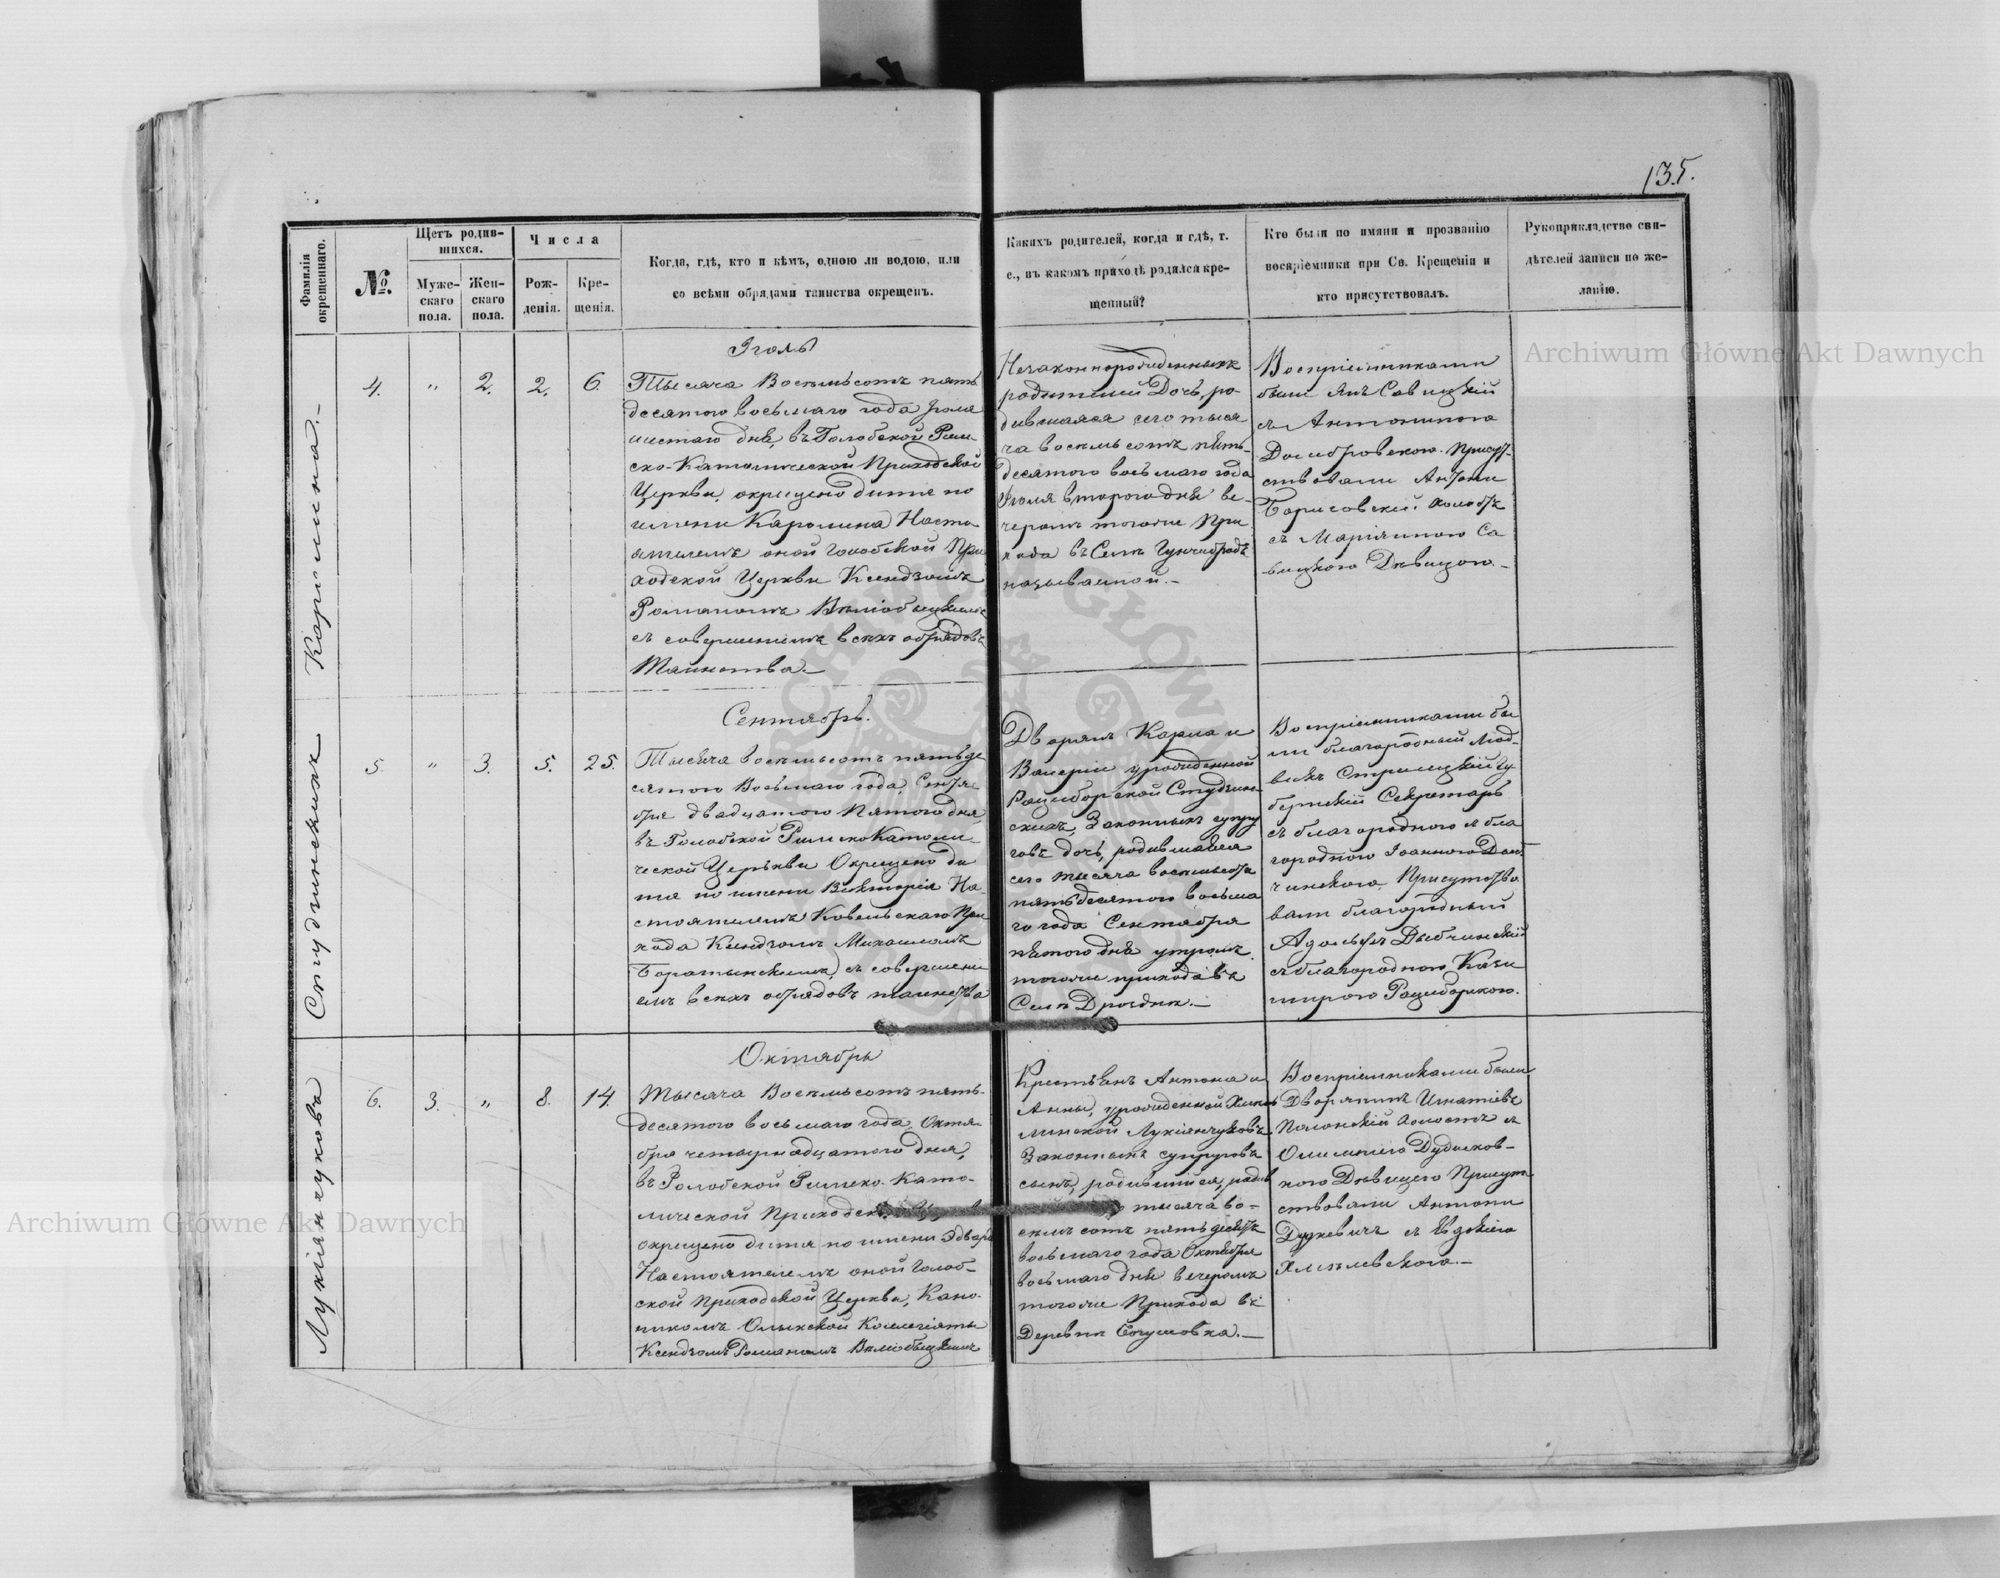 135.
Фамилія окрещеннаго.
№.
Щетъ родив-
шихся.
Муже-
скаго
пола.
Жен-
скаго
пола.
Числа
Рож-
денія.
Кре-
щенія.
Когда, гдѣ, кто и кѣмъ, одною ли водою, или
со всѣми обрядами таинства окрещенъ.
Какихъ родителей, когда и гдѣ, т.
е., въ какомъ приходѣ родился кре-
щенный?
Кто были по имяни и прозванію
воспріемники при Св. Крещеніи и
кто присутствовалъ.
Рукоприкладство сви-
дѣтелей записи по же-
ланію.
Каролина.
4. " 2. 2. 6.
Іюль
Тысяча Восемьсотъ пять
десятого восьмаго года Іюля
шестаго дня, въ Голобской Рим-
ско-Католической Приходской
Церкви, окрещено дитя по
имени Каролина Насто-
ятелемъ оной Голобской При
ходской Церкви Ксендзомъ
Романомъ
съ совершеніемъ всѣхъ обрядовъ
Таинства.
Незаконнорожденныхъ
родителей Дочь, ро-
дившаяся сего тыся
ча восемьсотъ пять-
десятого восьмаго года
Іюля втораго дня ве-
черомъ тогоже При
хода въ Селѣ
называемой.
Воспріемниками
были Янъ Савицкій
съ Антониною
Домбровскою. Присут-
ствовали Антони
Борисовскій холостъ
съ Маріянною Са
вицкою Дѣвицою.
Студзинскихъ
5. " 3. 5. 25.
Сентябрь.
Тысяча восемьсотъ пятьде
сятого Восьмаго года, Сентя-
бря двадцатого Пятого дня,
въ Голобской РимскоКатоли-
ческой Церькви Окрещено ди
тя по имени Викторія На-
стоятелемъ Ковельскаго При
хода Ксендзомъ Михаиломъ
Боратынскимъ, съ совершені
емъ всѣхъ обрядовъ таинства
Дворянъ Карла и
Валеріи урожденной
Рациборской Студзин-
скихъ, Законныхъ супру
говъ дочь, родившаяся
сего тысяча восемьсотъ
пятьдесятого восьма
го года Сентября
пятого дня утромъ
тогоже прихода въ
Селѣ Дроздни.
Воспріемниками бы
ли благородный Люд-
викъ Стрилецкій Гу
бернскій Секретарь
съ благородною
городною Іоанною
Присутство
вали благородный
Адольфъ
съ благородною Кази
мирою Рациборскою.
Лукіянчукова
6. 3. " 8. 14.
Октябрь
Тысяча Восемьсотъ пять-
десятого восьмаго года, Октя-
бря четырнадцатого дня,
въ Голобской Римско-Като-
лической Приходской
окрещено дитя по имени Эдвардъ
Настоятелемъ оной Голоб-
ской Приходской Церкви, Кано-
никомъ Олыкской Коллегіяты
Ксендзомъ Романомъ
Крестьянъ Антона и
Анны, урожденной
Лукіянчуковъ
Законныхъ супруговъ
сынъ, родившійся,
тысяча во-
семьсотъ пятьдесятъ
восьмаго года Октября
восьмаго дня вечеромъ
тогоже Прихода въ
Деревнѣ
Воспріемниками были
Дворянинъ Игнатіевъ
Полонскій холостъ съ
Дудьков-
кою Дѣвицею Присут
ствовали Антони
съ